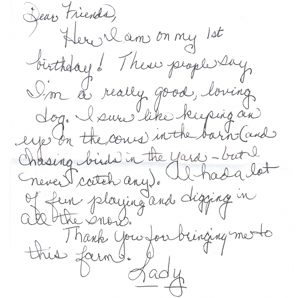 Dear Friends,
Here I am on my 1st
birthday! These people say
I'm a really good, loving
dog. I sure like keeping an
eye on the cows in the barn (and
chasing birds in the yard - but I
never catch any). I had a lot
of fun playing and digging in
all the snow.
Thank You for bringing me to
this farm.
Lady